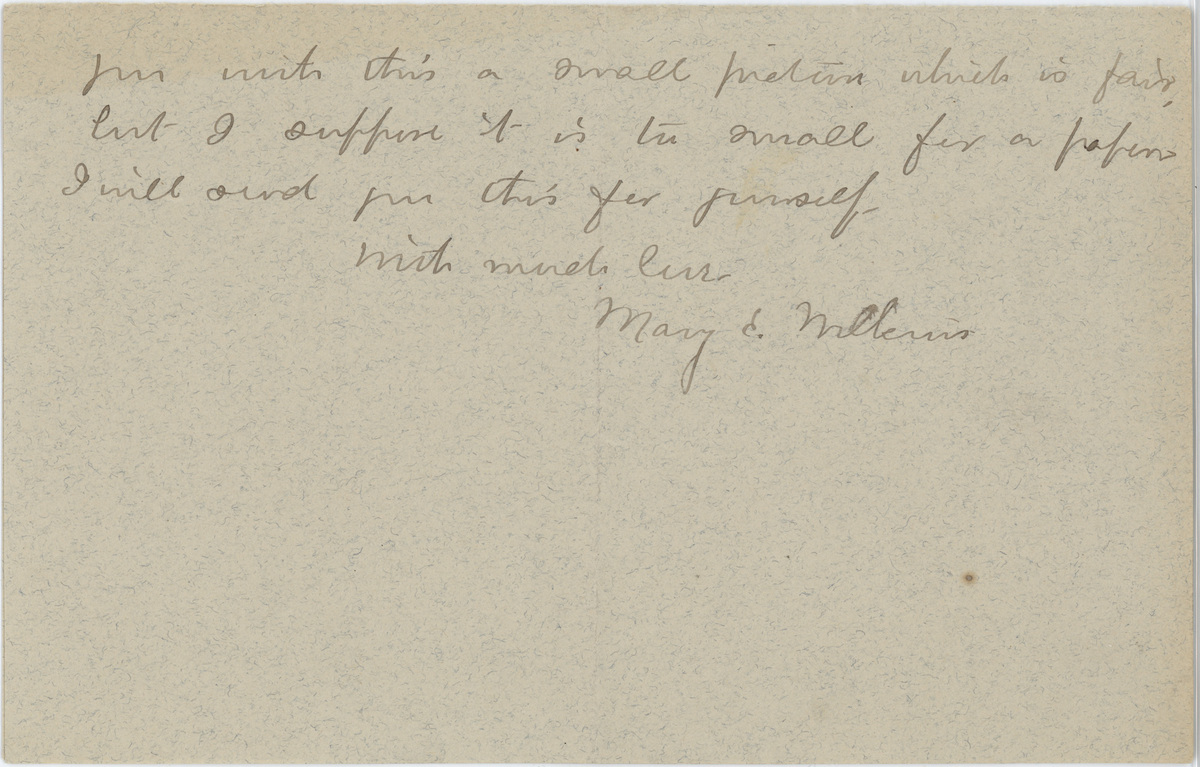 you with this a small picture which is fair,
but I suppose it is too small for a paper.
I will send you this for yourself.
With much love
Mary E. Wilkins